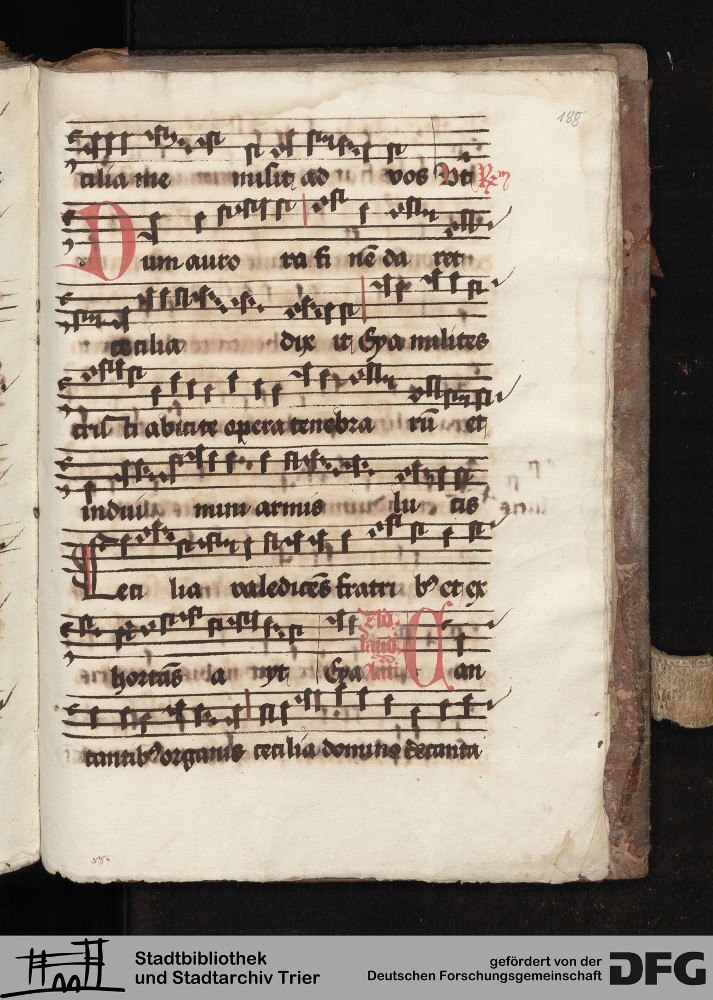 188
cilia me misit ad vos Vt Rm
Dum auro ra fi nē da ret
cecilia dix it Eya milites
cris ti abicite opera tenebra rū et
indui mini armis lu cis
Ceci lia valedicēs fratri bꝰ et ex
hortās a iiyt Eya
laud
Can
tantibꝰ organis cecilia domino decanta
Stadtbibliothek
und Stadtarchiv Trier
gefördert von der
Deutschen Forschungsgemeinschaft
DFG